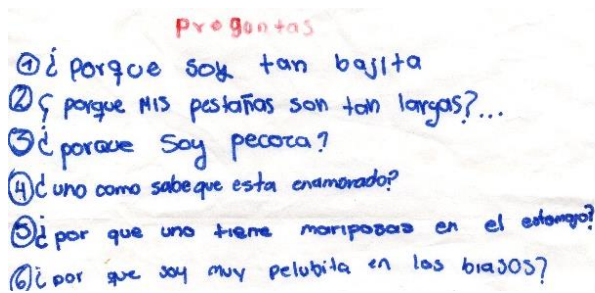 Preguntas
① ¿ porque soy tan bajita
② ¿ porque Mis pestañas son tan largas?...
③ ¿ porque soy pecoza?
④ ¿ uno como sabe que esta enamorado?
⑤ ¿ por que uno tiene mariposas en el estomago?
⑥ ¿ por que soy muy pelubita en los brasos?